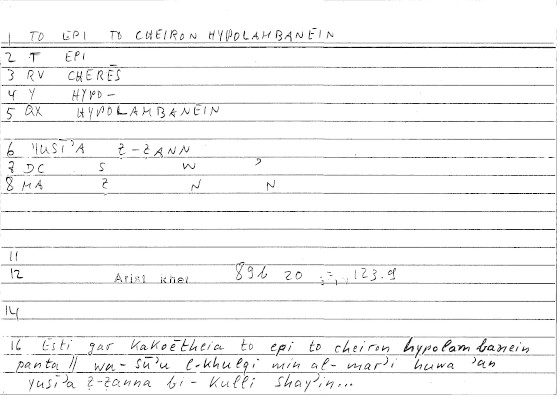 1 TO EPI TO CHEIRON HYPOLAMBANEIN
2 T EPI
3 RV CHERĒS
4 Y HYPO-
5 QX HYPOLAMBANEIN
6 YUSĪ'A Ẓ-ẒANN
7 DC S W '
8 MA Ẓ N N
11
12 Arist Rhet 89b 20 123.9
14
16 Esti gar kakoētheia to epi to cheiron hypolambanein
panta // wa-sū'u l-khulqi min al-mar'i huwa 'an
yusī'a ẓ-ẓanna bi-kulli shay'in...